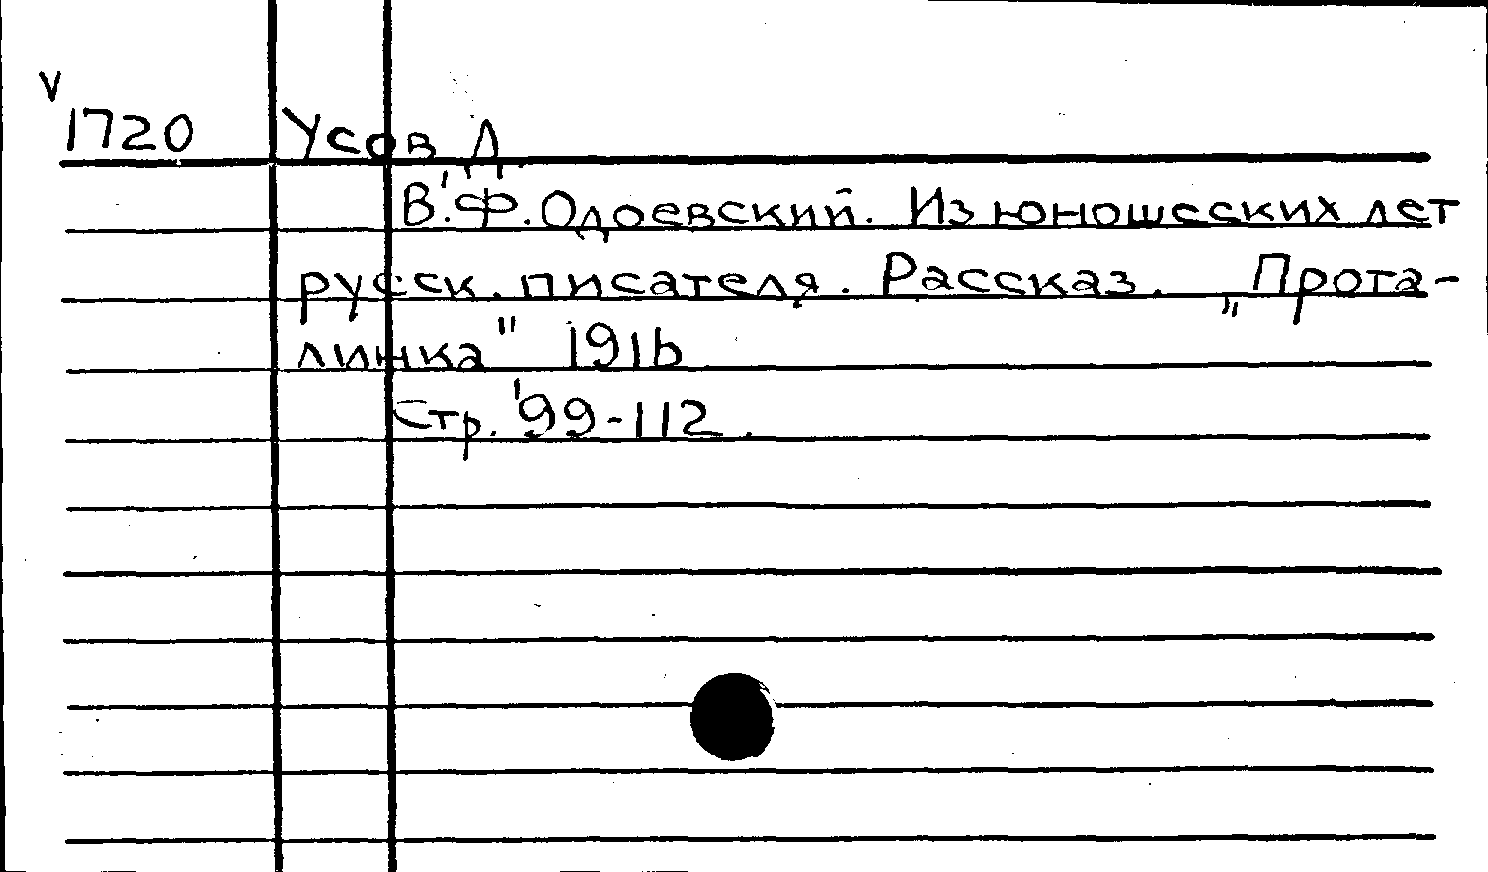 V
1720 Усов Д
В.Ф. Одоевский. Из юношеских лет
русск. писателя. Рассказ. „Прота-
линка" 1916
Стр. 99-112.